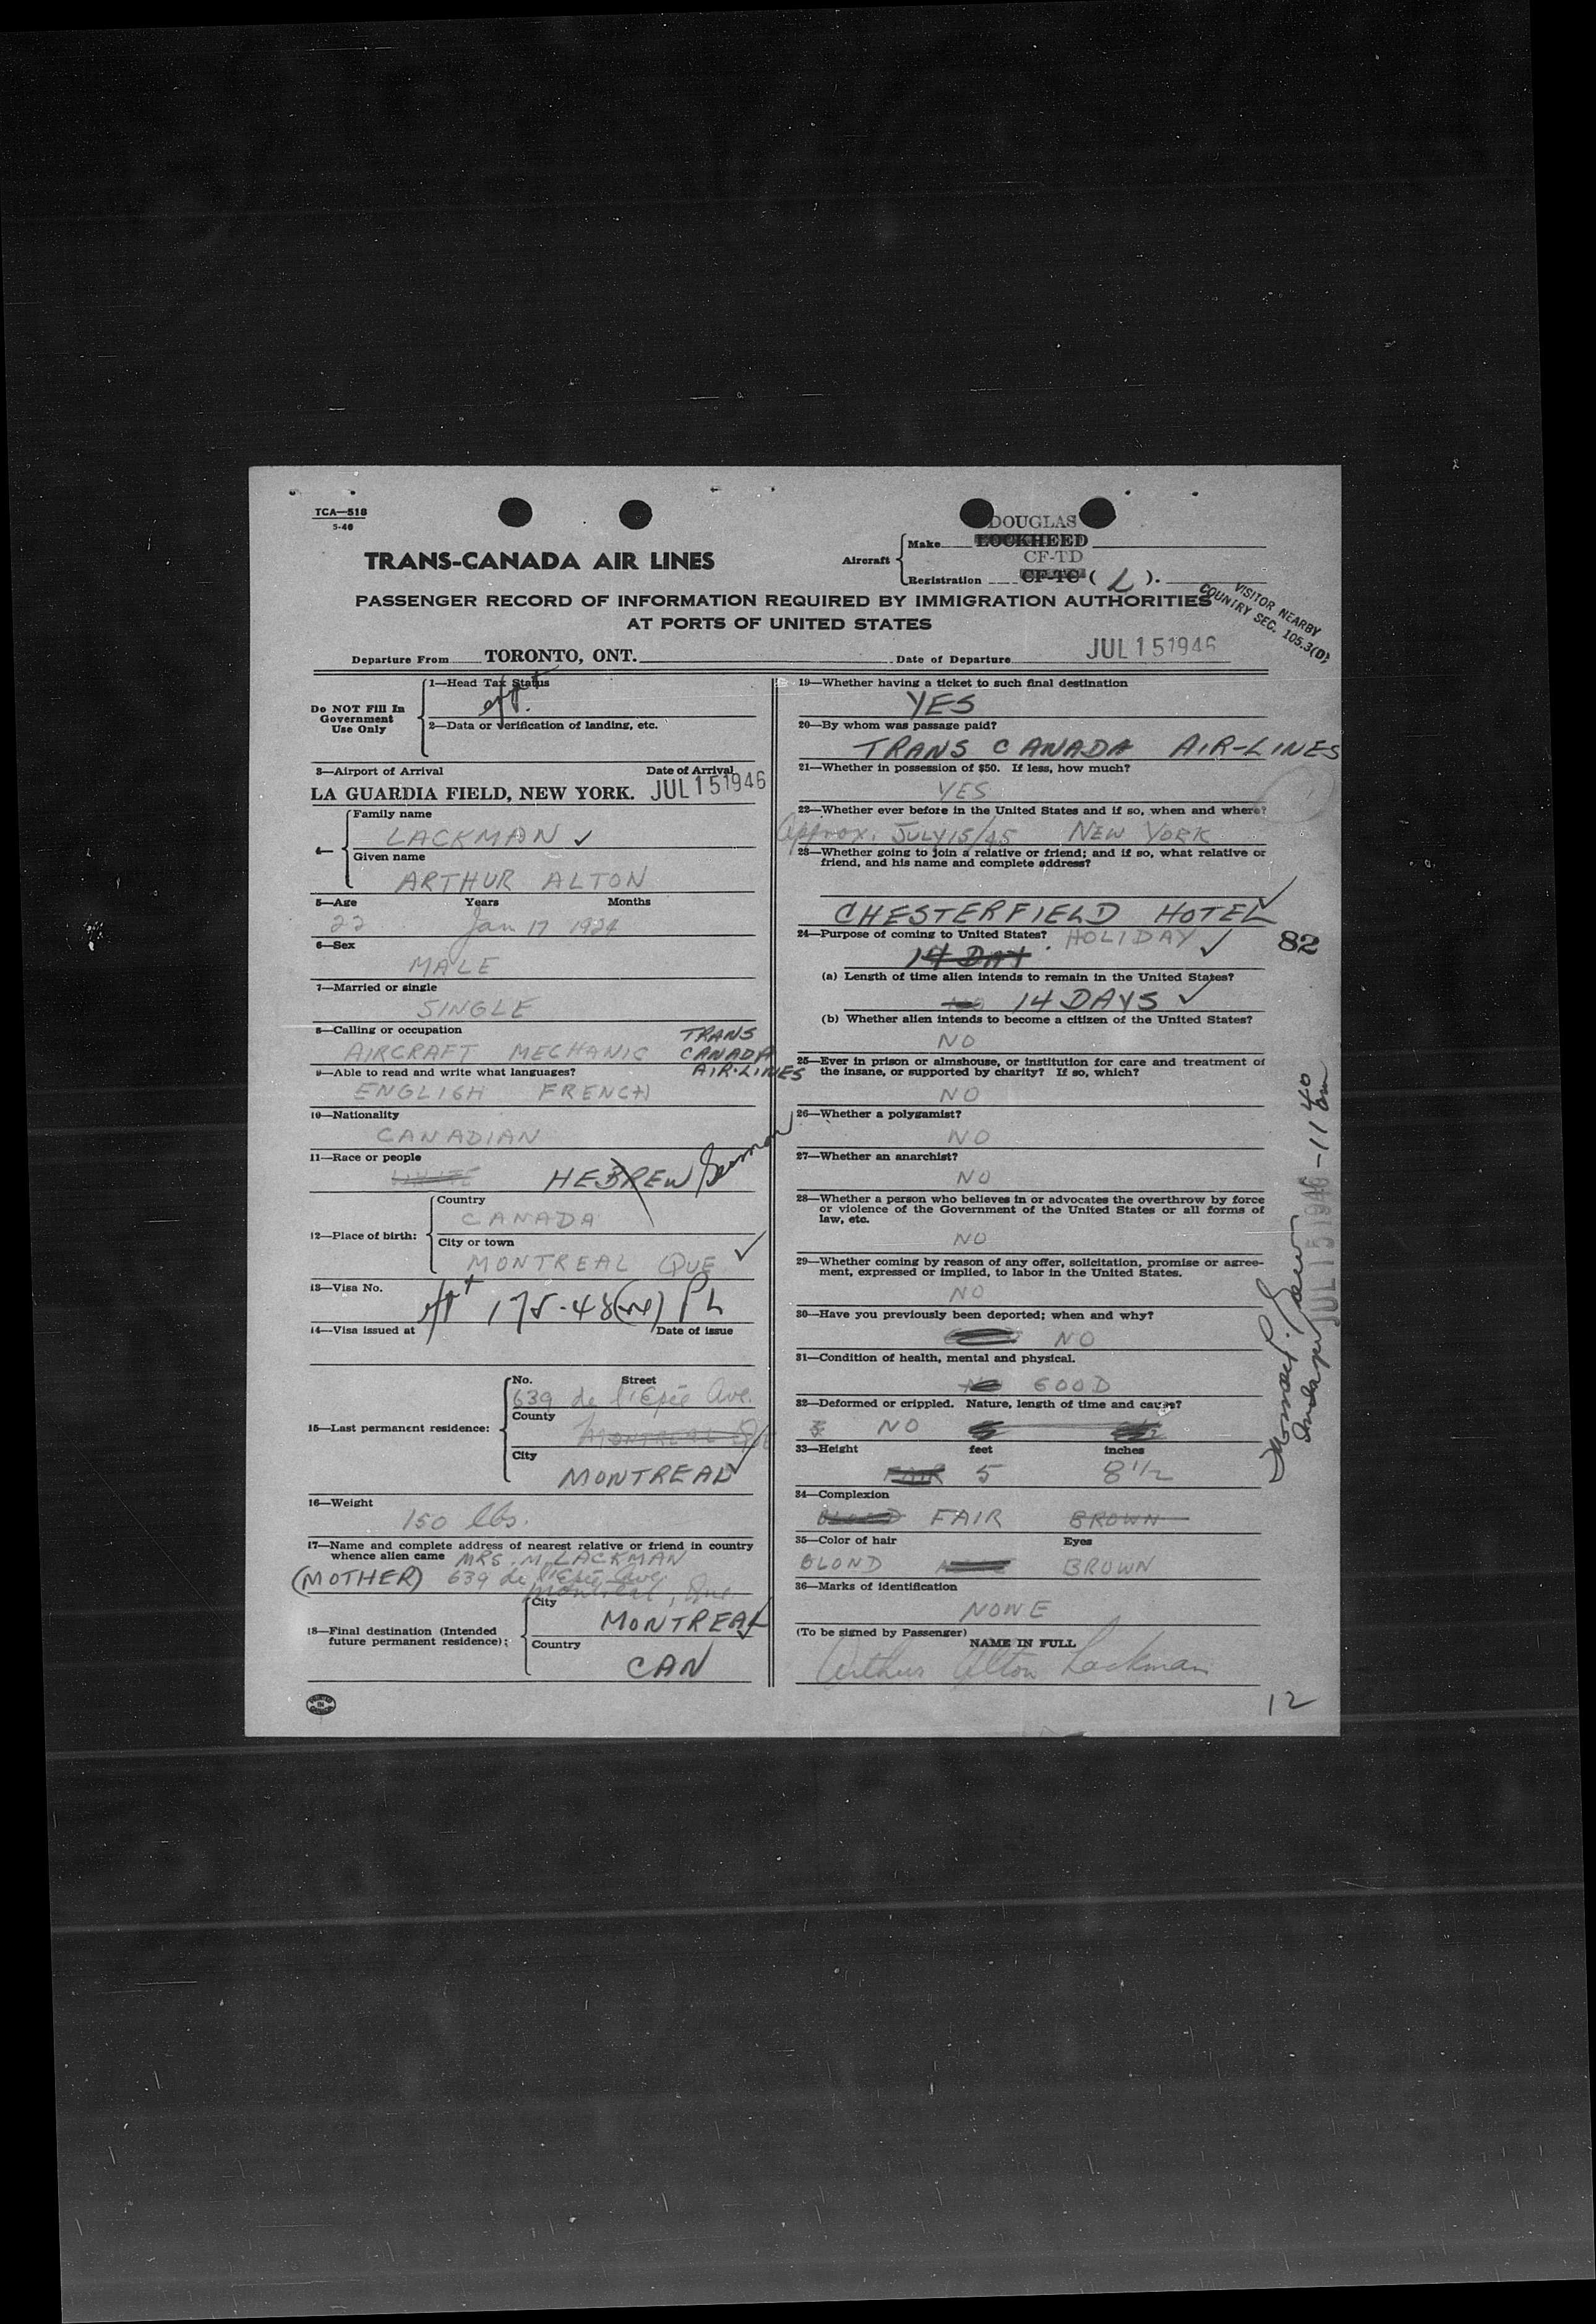 TCA—518
5-46
TRANS-CANADA AIR LINES
Aircraft
Make
DOUGLAS
LOCKHEED
CF-TD
Registration CF-TC ( L ).
PASSENGER RECORD OF INFORMATION REQUIRED BY IMMIGRATION AUTHORITIES
AT PORTS OF UNITED STATES
VISITOR NEARBY
COUNTRY SEC. 105.3(D)
Departure From TORONTO, ONT.
Date of Departure JUL 15 1946
Do NOT Fill In
Government
Use Only
1—Head Tax Status
2—Data or verification of landing, etc.
3—Airport of Arrival Date of Arrival
LA GUARDIA FIELD, NEW YORK. JUL 15 1946
4—
Family name
LACKMAN ✓
Given name
ARTHUR ALTON
5—Age Years Months
22 Jan 17 1924
6—Sex
MALE
7—Married or single
SINGLE
8—Calling or occupation
AIRCRAFT MECHANIC TRANS CANADA AIR-LINES
9—Able to read and write what languages?
ENGLISH FRENCH
10—Nationality
CANADIAN
11—Race or people
WHITE HEBREW German
12—Place of birth:
Country
CANADA
City or town
MONTREAL QUE ✓
13—Visa No.
175-48
14—Visa issued at Date of issue
15—Last permanent residence:
No. Street
639 de l'Epée Ave.
County
MONTREAL Que
City
MONTREAL
16—Weight
150 lbs.
17—Name and complete address of nearest relative or friend in country
whence alien came MRS. M. LACKMAN
(MOTHER) 639 de l'Epée Ave
Montreal, Que
18—Final destination (Intended
future permanent residence):
City
MONTREAL
Country
CAN
19—Whether having a ticket to such final destination
YES
20—By whom was passage paid?
TRANS CANADA AIR-LINES
21—Whether in possession of $50. If less, how much?
YES
22—Whether ever before in the United States and if so, when and where?
Approx. JULY 15/45 NEW YORK
23—Whether going to join a relative or friend; and if so, what relative or
friend, and his name and complete address?
CHESTERFIELD HOTEL ✓
24—Purpose of coming to United States? HOLIDAY ✓
14 DAY
82
(a) Length of time alien intends to remain in the United States?
NO 14 DAYS ✓
(b) Whether alien intends to become a citizen of the United States?
NO
25—Ever in prison or almshouse, or institution for care and treatment of
the insane, or supported by charity? If so, which?
NO
26—Whether a polygamist?
NO
27—Whether an anarchist?
NO
28—Whether a person who believes in or advocates the overthrow by force
or violence of the Government of the United States or all forms of
law, etc.
NO
29—Whether coming by reason of any offer, solicitation, promise or agree-
ment, expressed or implied, to labor in the United States.
NO
30—Have you previously been deported; when and why?
NO
31—Condition of health, mental and physical.
NO GOOD
32—Deformed or crippled. Nature, length of time and cause?
NO
33—Height feet inches
FAIR 5 8 1/2
34—Complexion
BLOND FAIR BROWN
35—Color of hair Eyes
BLOND BROWN
36—Marks of identification
NONE
(To be signed by Passenger)
NAME IN FULL
Arthur Alton Lackman
JUL 15 1946 - 11 40 am
12